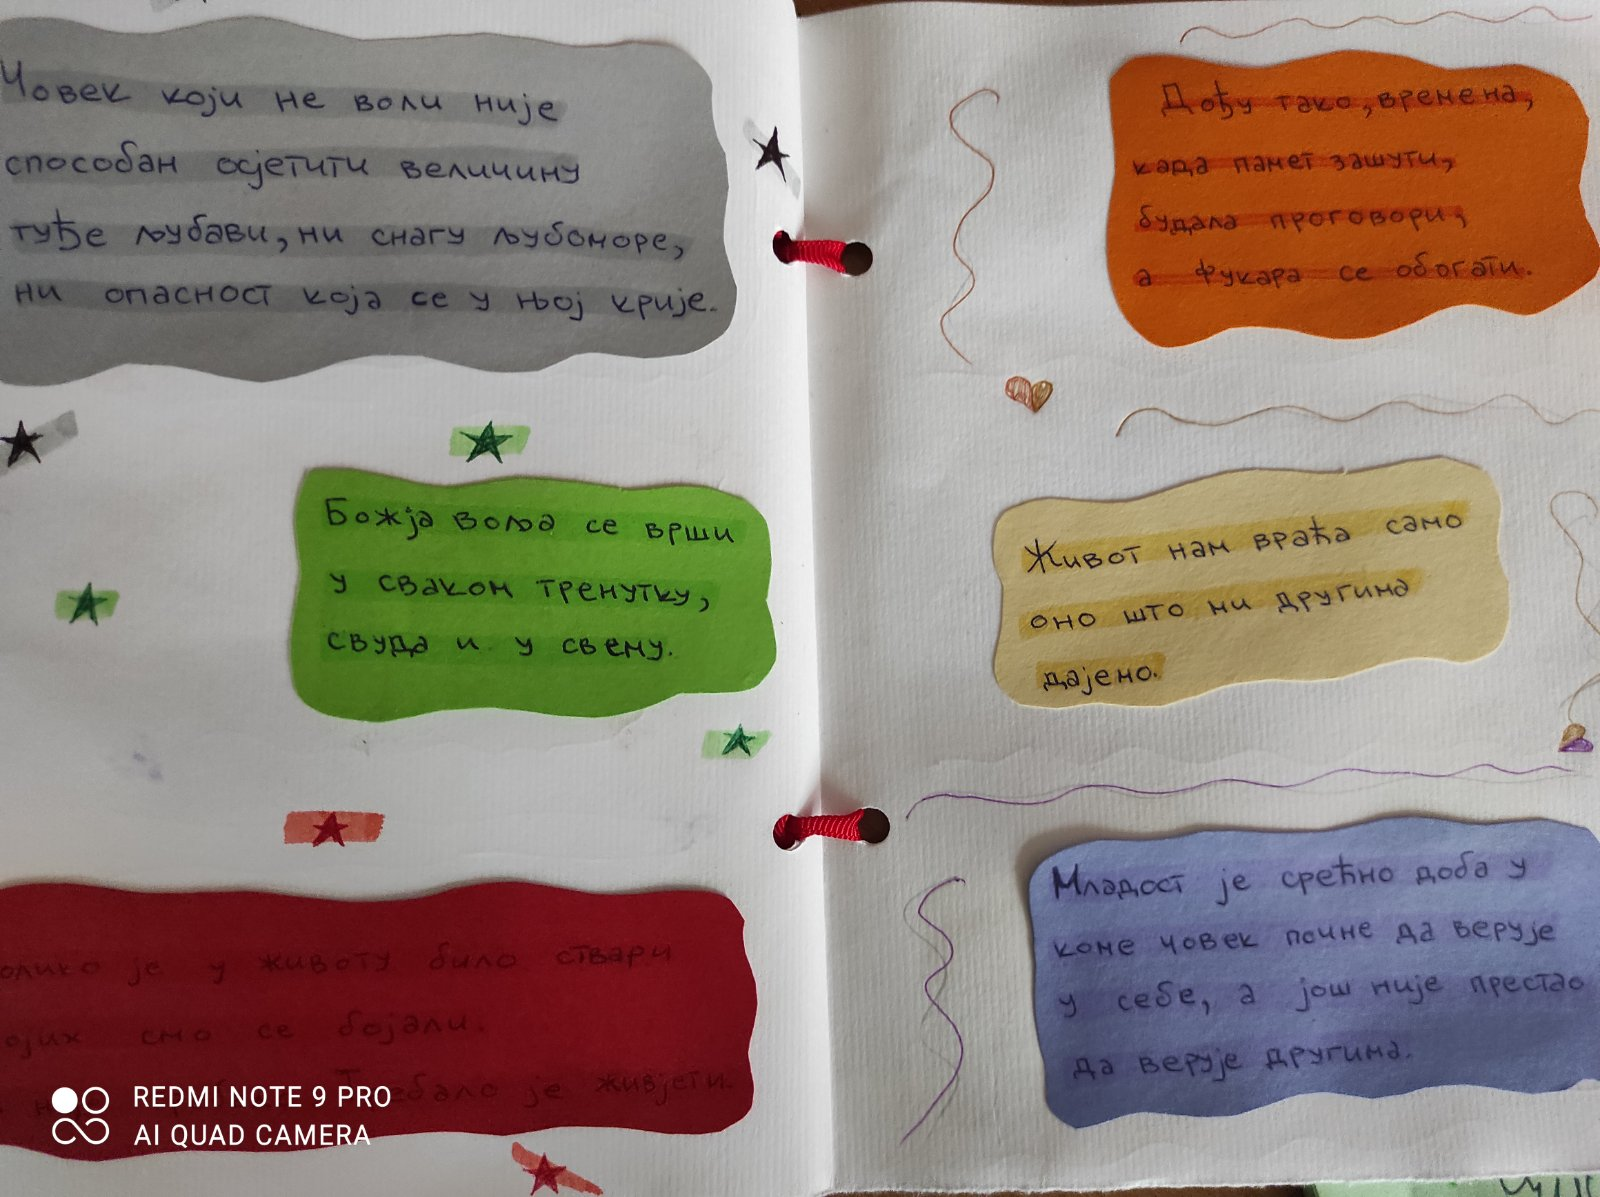 Човек који не воли није
способан осјетити величину
туђе љубави, ни снагу љубоморе,
ни опасност која се у њој крије.
Божја воља се врши
у сваком тренутку,
свуда и у свему.
је у животу било ствари
смо се бојали.
Требало је живјети.
REDMI NOTE 9 PRO
AI QUAD CAMERA
Дођу тако, времена,
када памет зашути,
будала проговори,
а фукара се обогати.
Живот нам враћа само
оно што ми другима
дајемо.
Младост је срећно доба у
коме човек почне да верује
у себе, а још није престао
да верује другима.